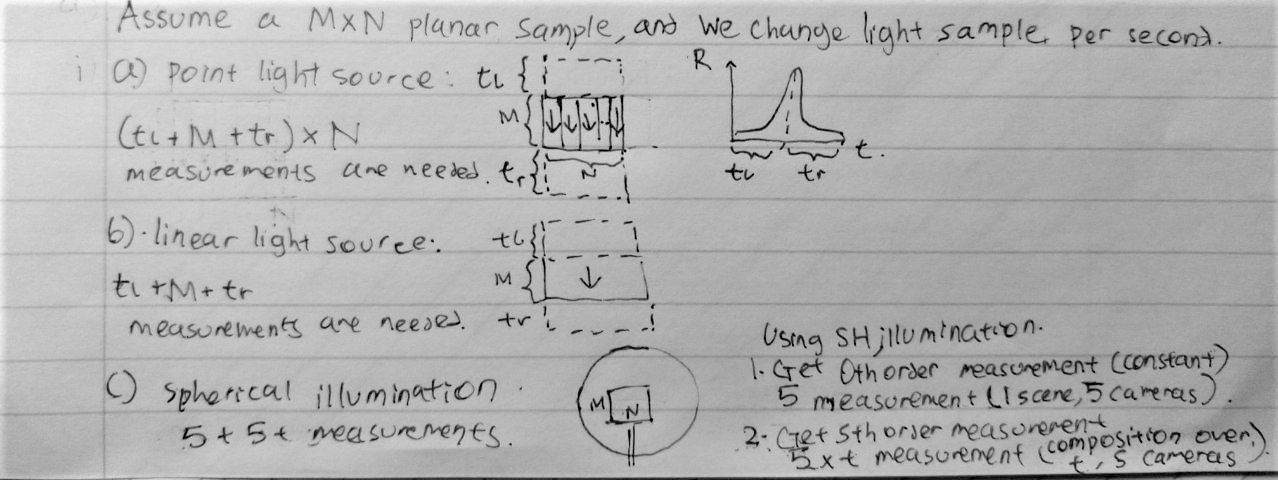 Assume a M×N planar sample, and we change light sample per second.
i a) point light source: tl {
M {
(tl + M + tr) × N
measurements are needed. tr {
N
R
t.
tl tr
b) · linear light source:
tl {
M {
tl + M + tr
measurements are needed. tr
c) spherical illumination.
5 + 5t measurements.
M N
Using SH illumination.
1. Get 0th order measurement (constant)
5 measurement (1 scene, 5 cameras).
2. Get 5th order measurement
5×t measurement (composition over t, 5 cameras).